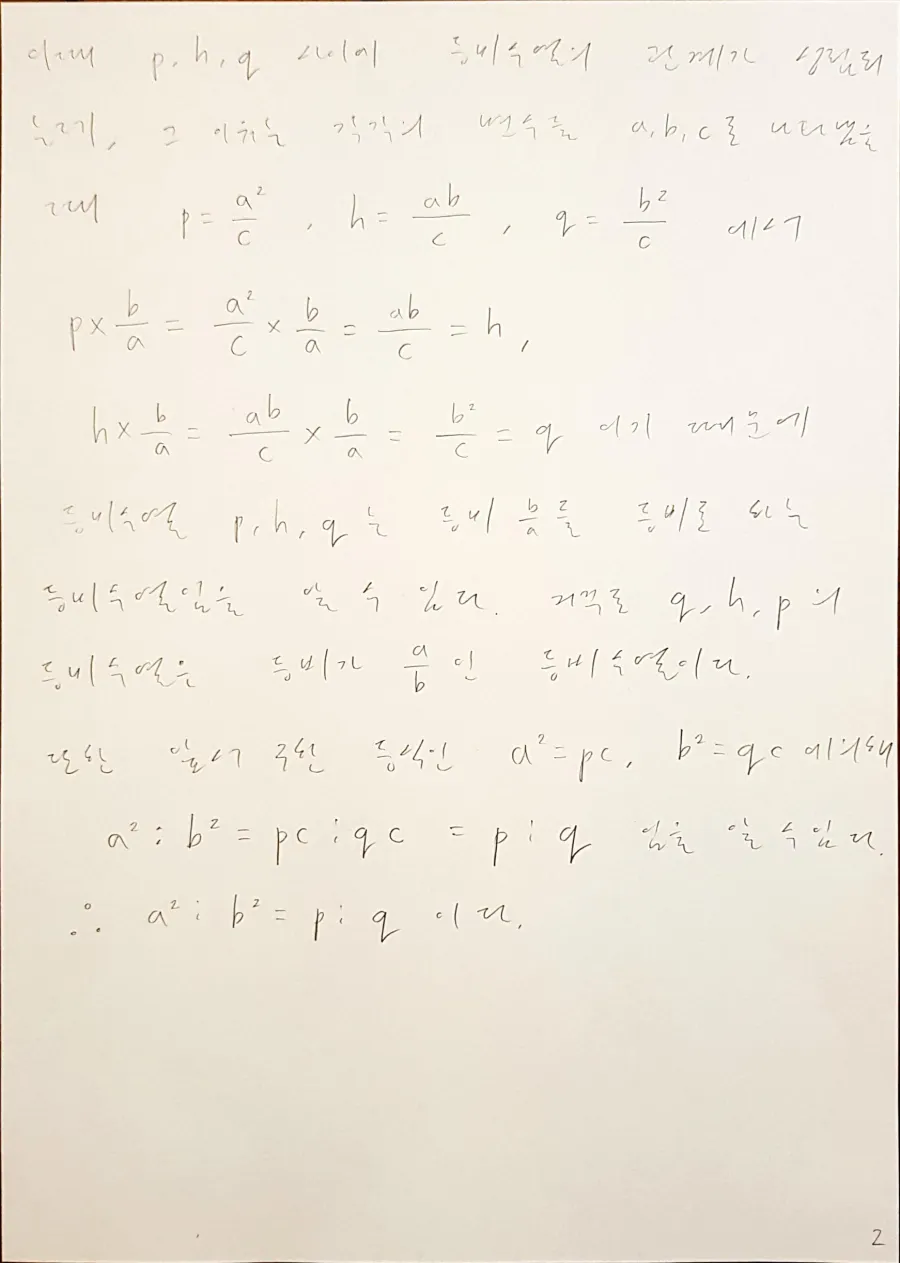 이때 p, h, q 사이에 등비수열의 관계가 성립되
는데, 그 이유는 각각의 변수를 a, b, c로 나타냈을
때 p = a²/c , h = ab/c , q = b²/c 에서
p × b/a = a²/c × b/a = ab/c = h ,
h × b/a = ab/c × b/a = b²/c = q 이기 때문에
등비수열 p, h, q 는 등비 b/a를 등비로 하는
등비수열임을 알 수 있다. 거꾸로 q, h, p의
등비수열은 등비가 a/b 인 등비수열이다.
또한 앞서 구한 등식인 a² = pc, b² = qc 에 의해
a² : b² = pc : qc = p : q 임을 알 수 있다.
∴ a² : b² = p : q 이다.
2